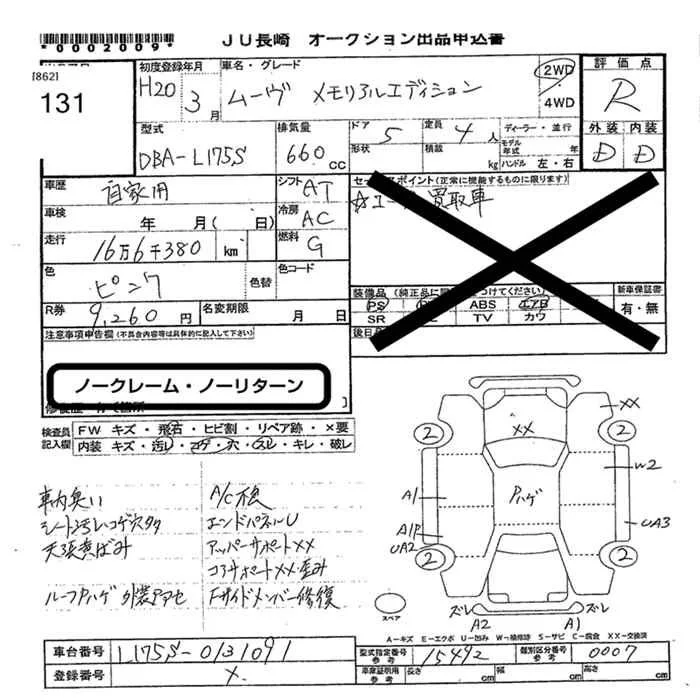 *0002009*
JU長崎 オークション出品申込書
[862]
131
初度登録年月
H20 3月
車名・グレード
ムーヴ メモリアルエディション
2WD
・
4WD
評価点
R
外装 内装
D D
型式
DBA-L175S
排気量
660 cc
ドア 5
形状
定員 4人
積載 kg
ディーラー・並行
モデル年式 年
ハンドル 左・右
車歴 自家用
シフト AT
車検 年 月( 日)
冷房 AC
走行 16万6千380 km
燃料 G
色 ピンク
色替
色コード
R券 9,260円
名変期限 月 日
セールスポイント(正常に機能するものに限ります)
買取車
装備品
PS ABS エアB
SR TV カワ
新車保証書
有・無
後日
注意事項申告欄(不具合内容等は具体的に記入して下さい)
ノークレーム・ノーリターン
検査員記入欄
FW キズ・飛石・ヒビ割・リペア跡・×要
内装 キズ・汚レ・コゲ・穴・スレ・キレ・破レ
車内臭い
シート汚レコゲ穴多
天張黄ばみ
ルーフPハゲ 外装アセ
A/C不良
エンドパネルU
アッパーサポートXX
コアサポートXX・歪み
Fサイドメンバー修復
XX
2 2
XX
W2
A1
Pハゲ
A1P
UA3
UA2
2 2
ズレ ズレ
A2 A1
スペア
A-キズ E-エクボ U-凹み W-補修跡 S-サビ C-腐食 XX-交換済
車台番号 L175S-0131091
登録番号 ×
型式指定番号 参考 15492
類別区分番号 参考 0007
車庫証明用 参考 長さ cm 幅 cm 高さ cm